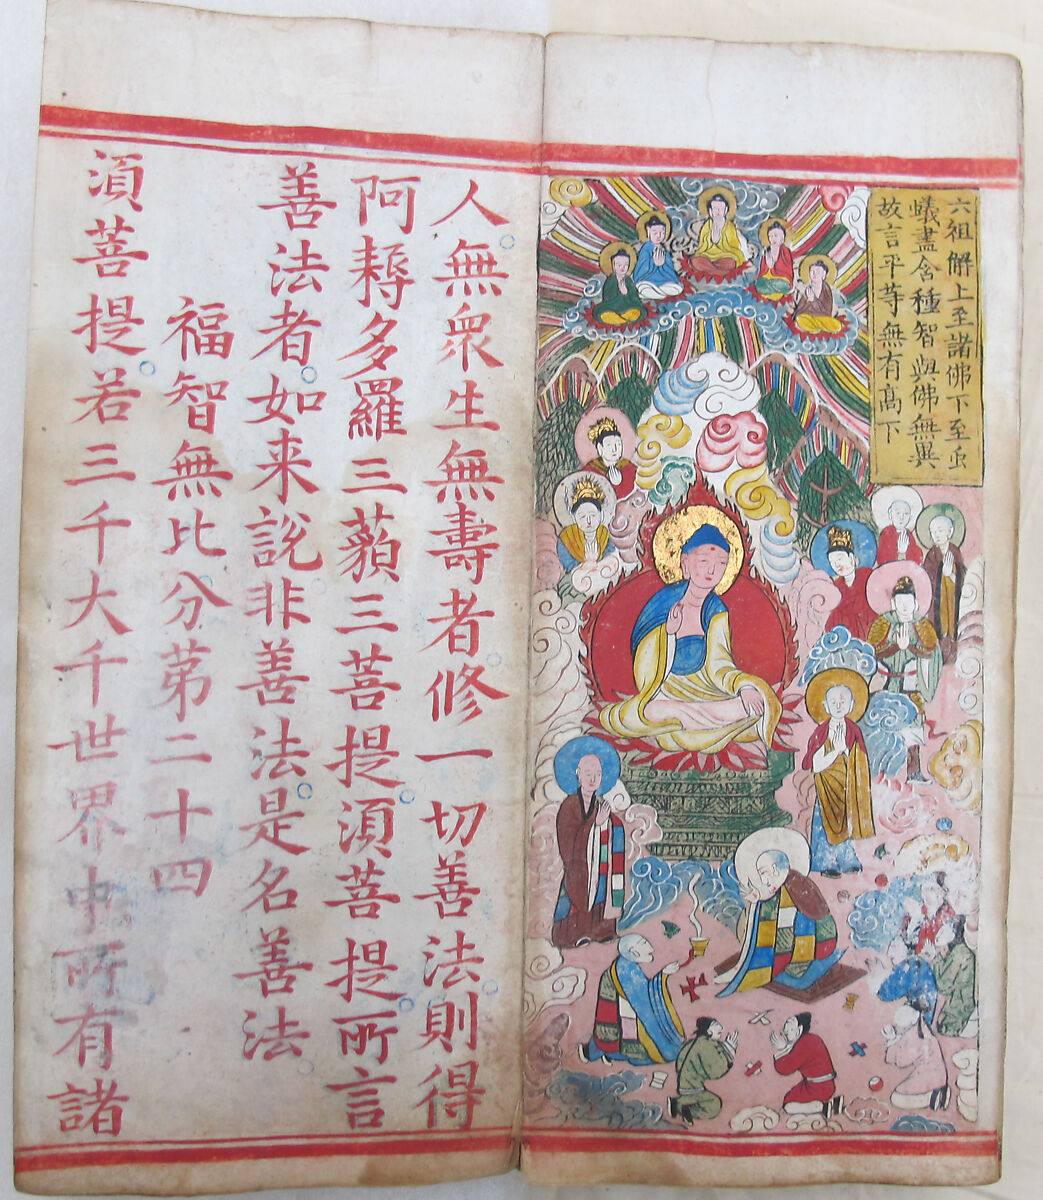 六祖解上至諸佛下至虫
蟻盡含種智與佛無異
故言平等無有高下
人。無衆生。無壽者。修一切善法。則得
阿耨多羅三藐三菩提。湏菩提。所言
善法者。如来說。非善法。是名善法。
福智無比分第二十四
湏菩提。若三千大千世界中所有諸